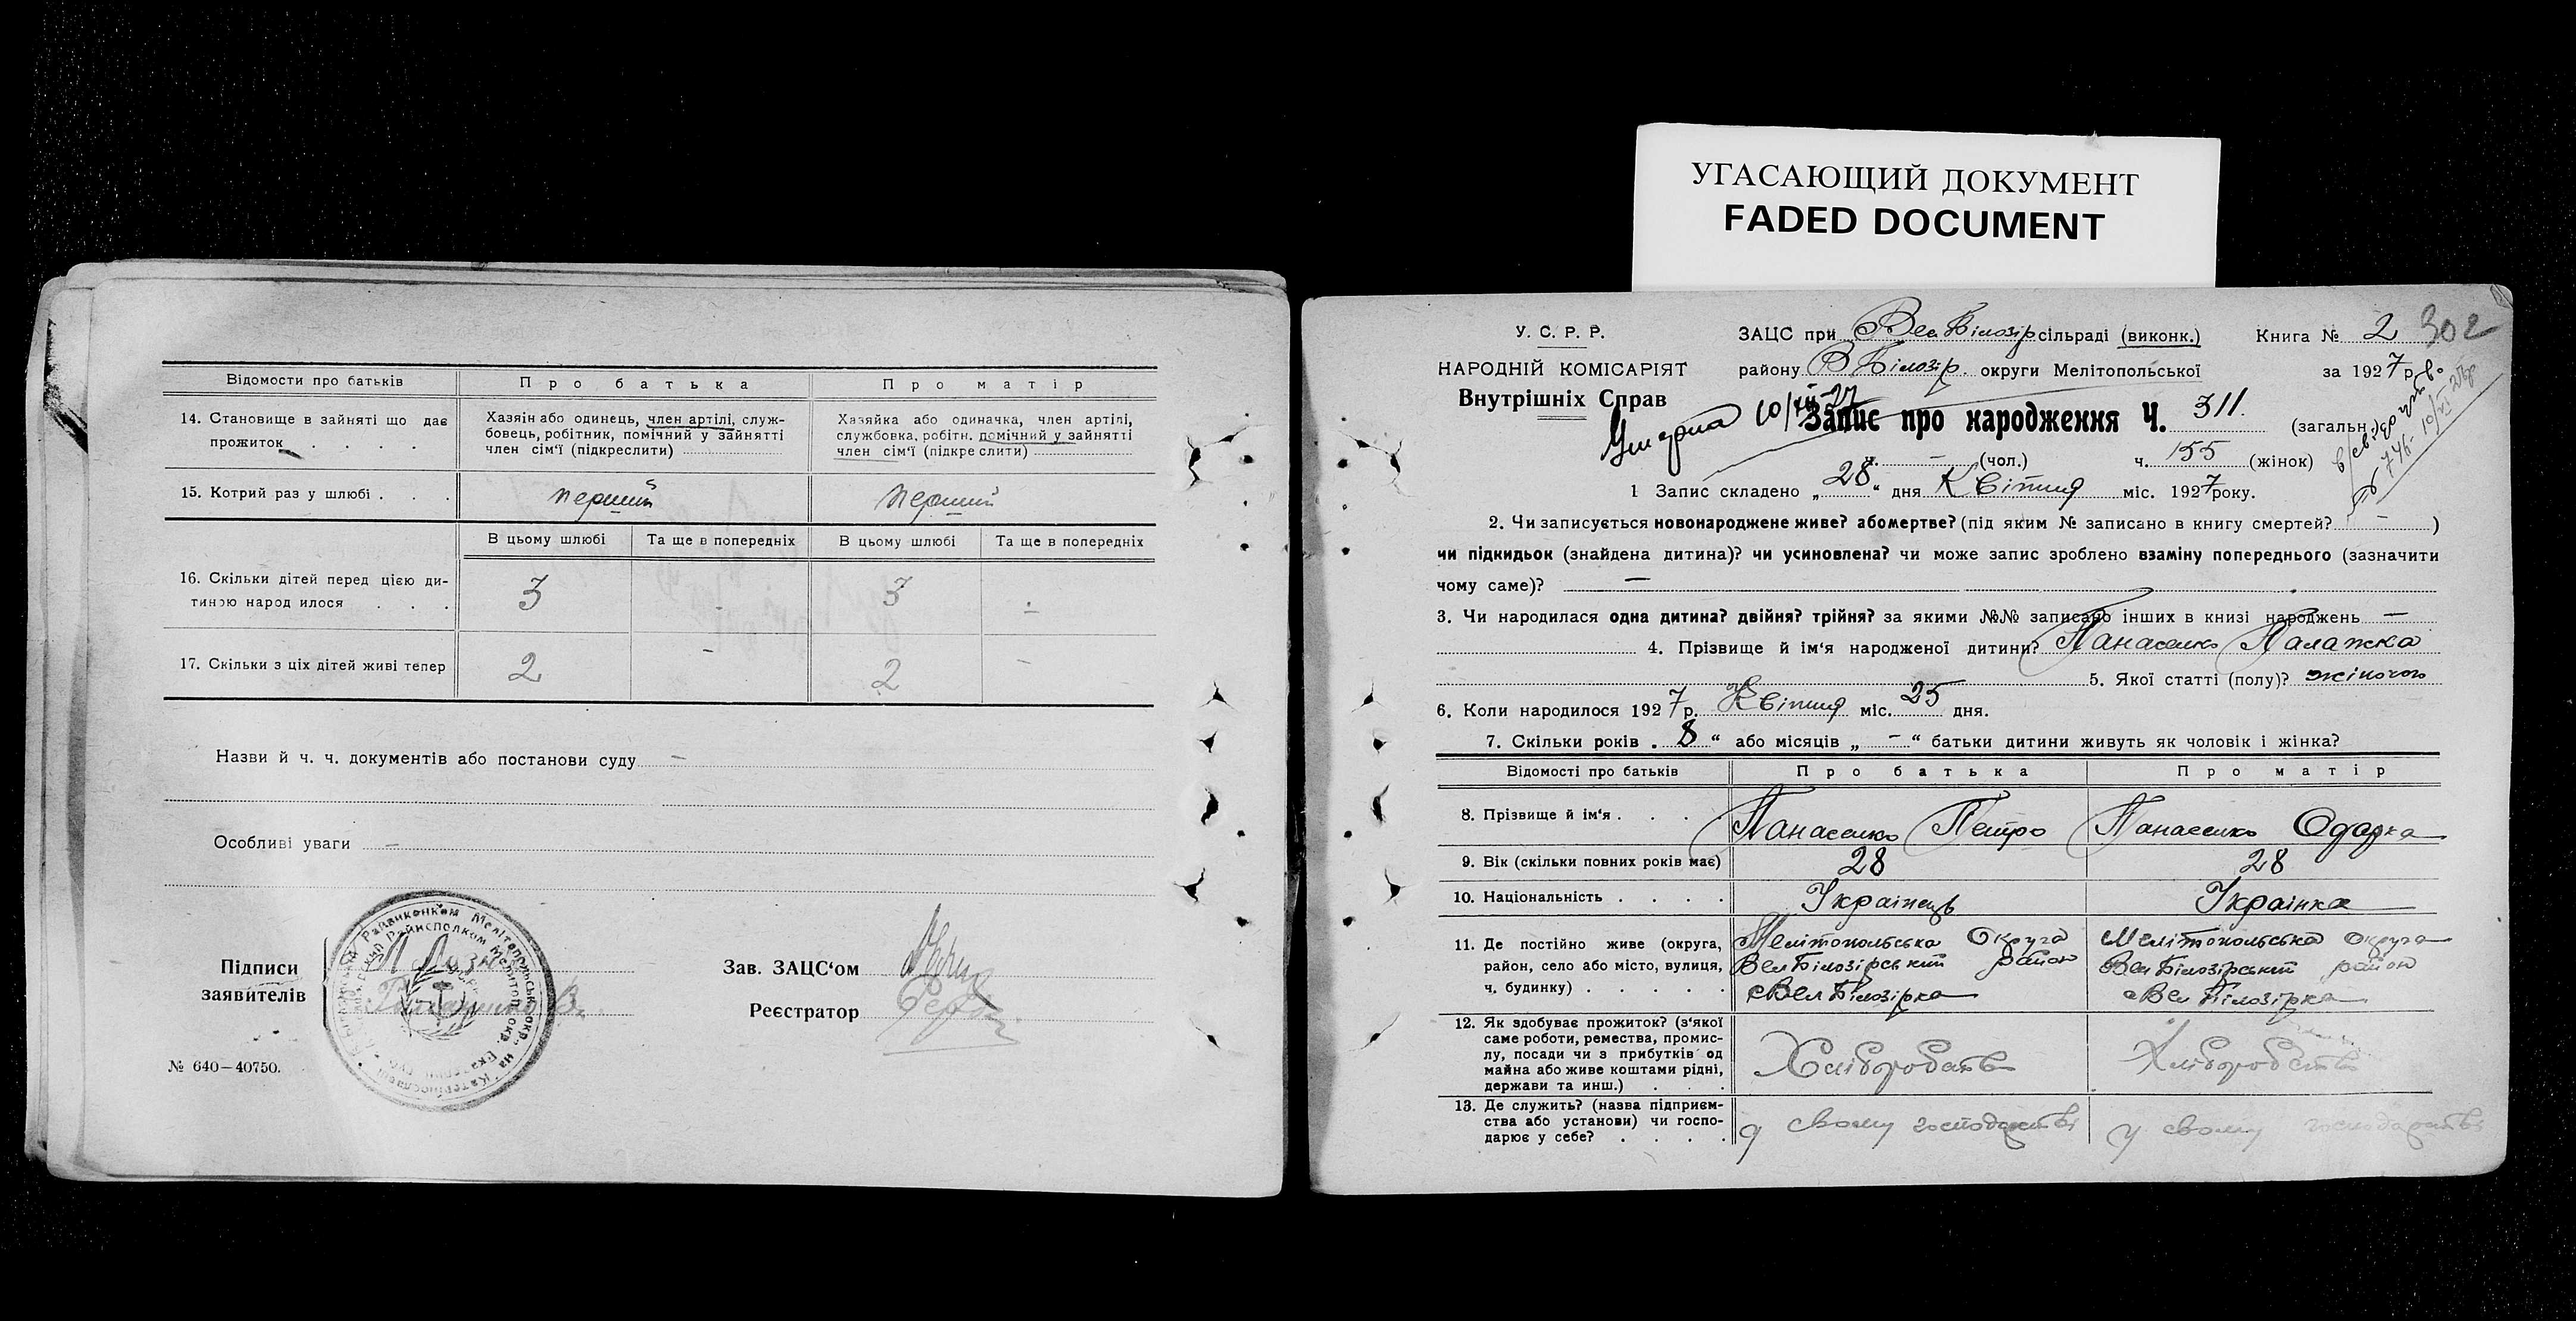 УГАСАЮЩИЙ ДОКУМЕНТ
FADED DOCUMENT
Відомости про батьків Про батька Про матір
14. Становище в зайняті що дає прожиток . . . .
Хазяін або одинець, член артілі, служ-
бовець, робітник, помічний у зайнятті
член сім'ї (підкреслити)
Хазяйка або одиначка, член артілі,
службовка, робітн. помічний у зайнятті
член сім'ї (підкреслити)
15. Котрий раз у шлюбі . . . перший перший
В цьому шлюбі Та ще в попередніх В цьому шлюбі Та ще в попередніх
16. Скільки дітей перед цією ди-
тиною народилося . . . 3 - 3 -
17. Скільки з ціх дітей живі тепер 2 - 2 -
Назви й ч. ч. документів або постанови суду —
Особливі уваги —
Підписи
заявителів
Зав. ЗАЦС'ом
Реєстратор
№ 640—40750.
У. С. Р. Р.
НАРОДНІЙ КОМІСАРІЯТ
Внутрішніх Справ
ЗАЦС при Вел Білозір сільраді (виконк.) Книга № 2 302
району В Білозір. округи Мелітопольської за 1927 р.
Умерла 10/VII-27
Запис про народження Ч. 311. (загальн.)
ч. — (чол.) ч. 155 (жінок)
1 Запис складено „28“ дня Квітня міс. 1927 року.
2. Чи записується новонароджене живе? або мертве? (під яким № записано в книгу смертей? — )
чи підкидьок (знайдена дитина)? чи усиновлена? чи може запис зроблено взаміну попереднього (зазначити
чому саме)? —
3. Чи народилася одна дитина? двійня? трійня? за якими №№ записано інших в книзі народжень —
4. Прізвище й ім'я народженої дитини? Панасенко Палажка
5. Якої статті (полу)? жіночого
6. Коли народилося 1927 р. Квітня міс. 25 дня.
7. Скільки років „8“ або місяців „—“ батьки дитини живуть як чоловік і жінка?
Відомості про батьків Про батька Про матір
8. Прізвище й ім'я . . . . Панасенко Петро Панасенко Одарка
9. Вік (скільки повних років має) 28 28
10. Національність . . . . Украінець Украінка
11. Де постійно живе (округа,
район, село або місто, вулиця,
ч. будинку) . . . . .
Мелітопольська Округа
Вел Білозірський район
с Вел Білозірка
Мелітопольська округа
Вел Білозірський район
с Вел Білозірка
12. Як здобуває прожиток? (з'якої
саме роботи, ремества, промис-
лу, посади чи з прибутків од
майна або живе коштами рідні,
держави та инш.) . . .
Хліборобств
Хліборобств
13. Де служить? (назва підприєм-
ства або установи) чи госпо-
дарює у себе? . . . .
у свому господарстві
у свому господарстві